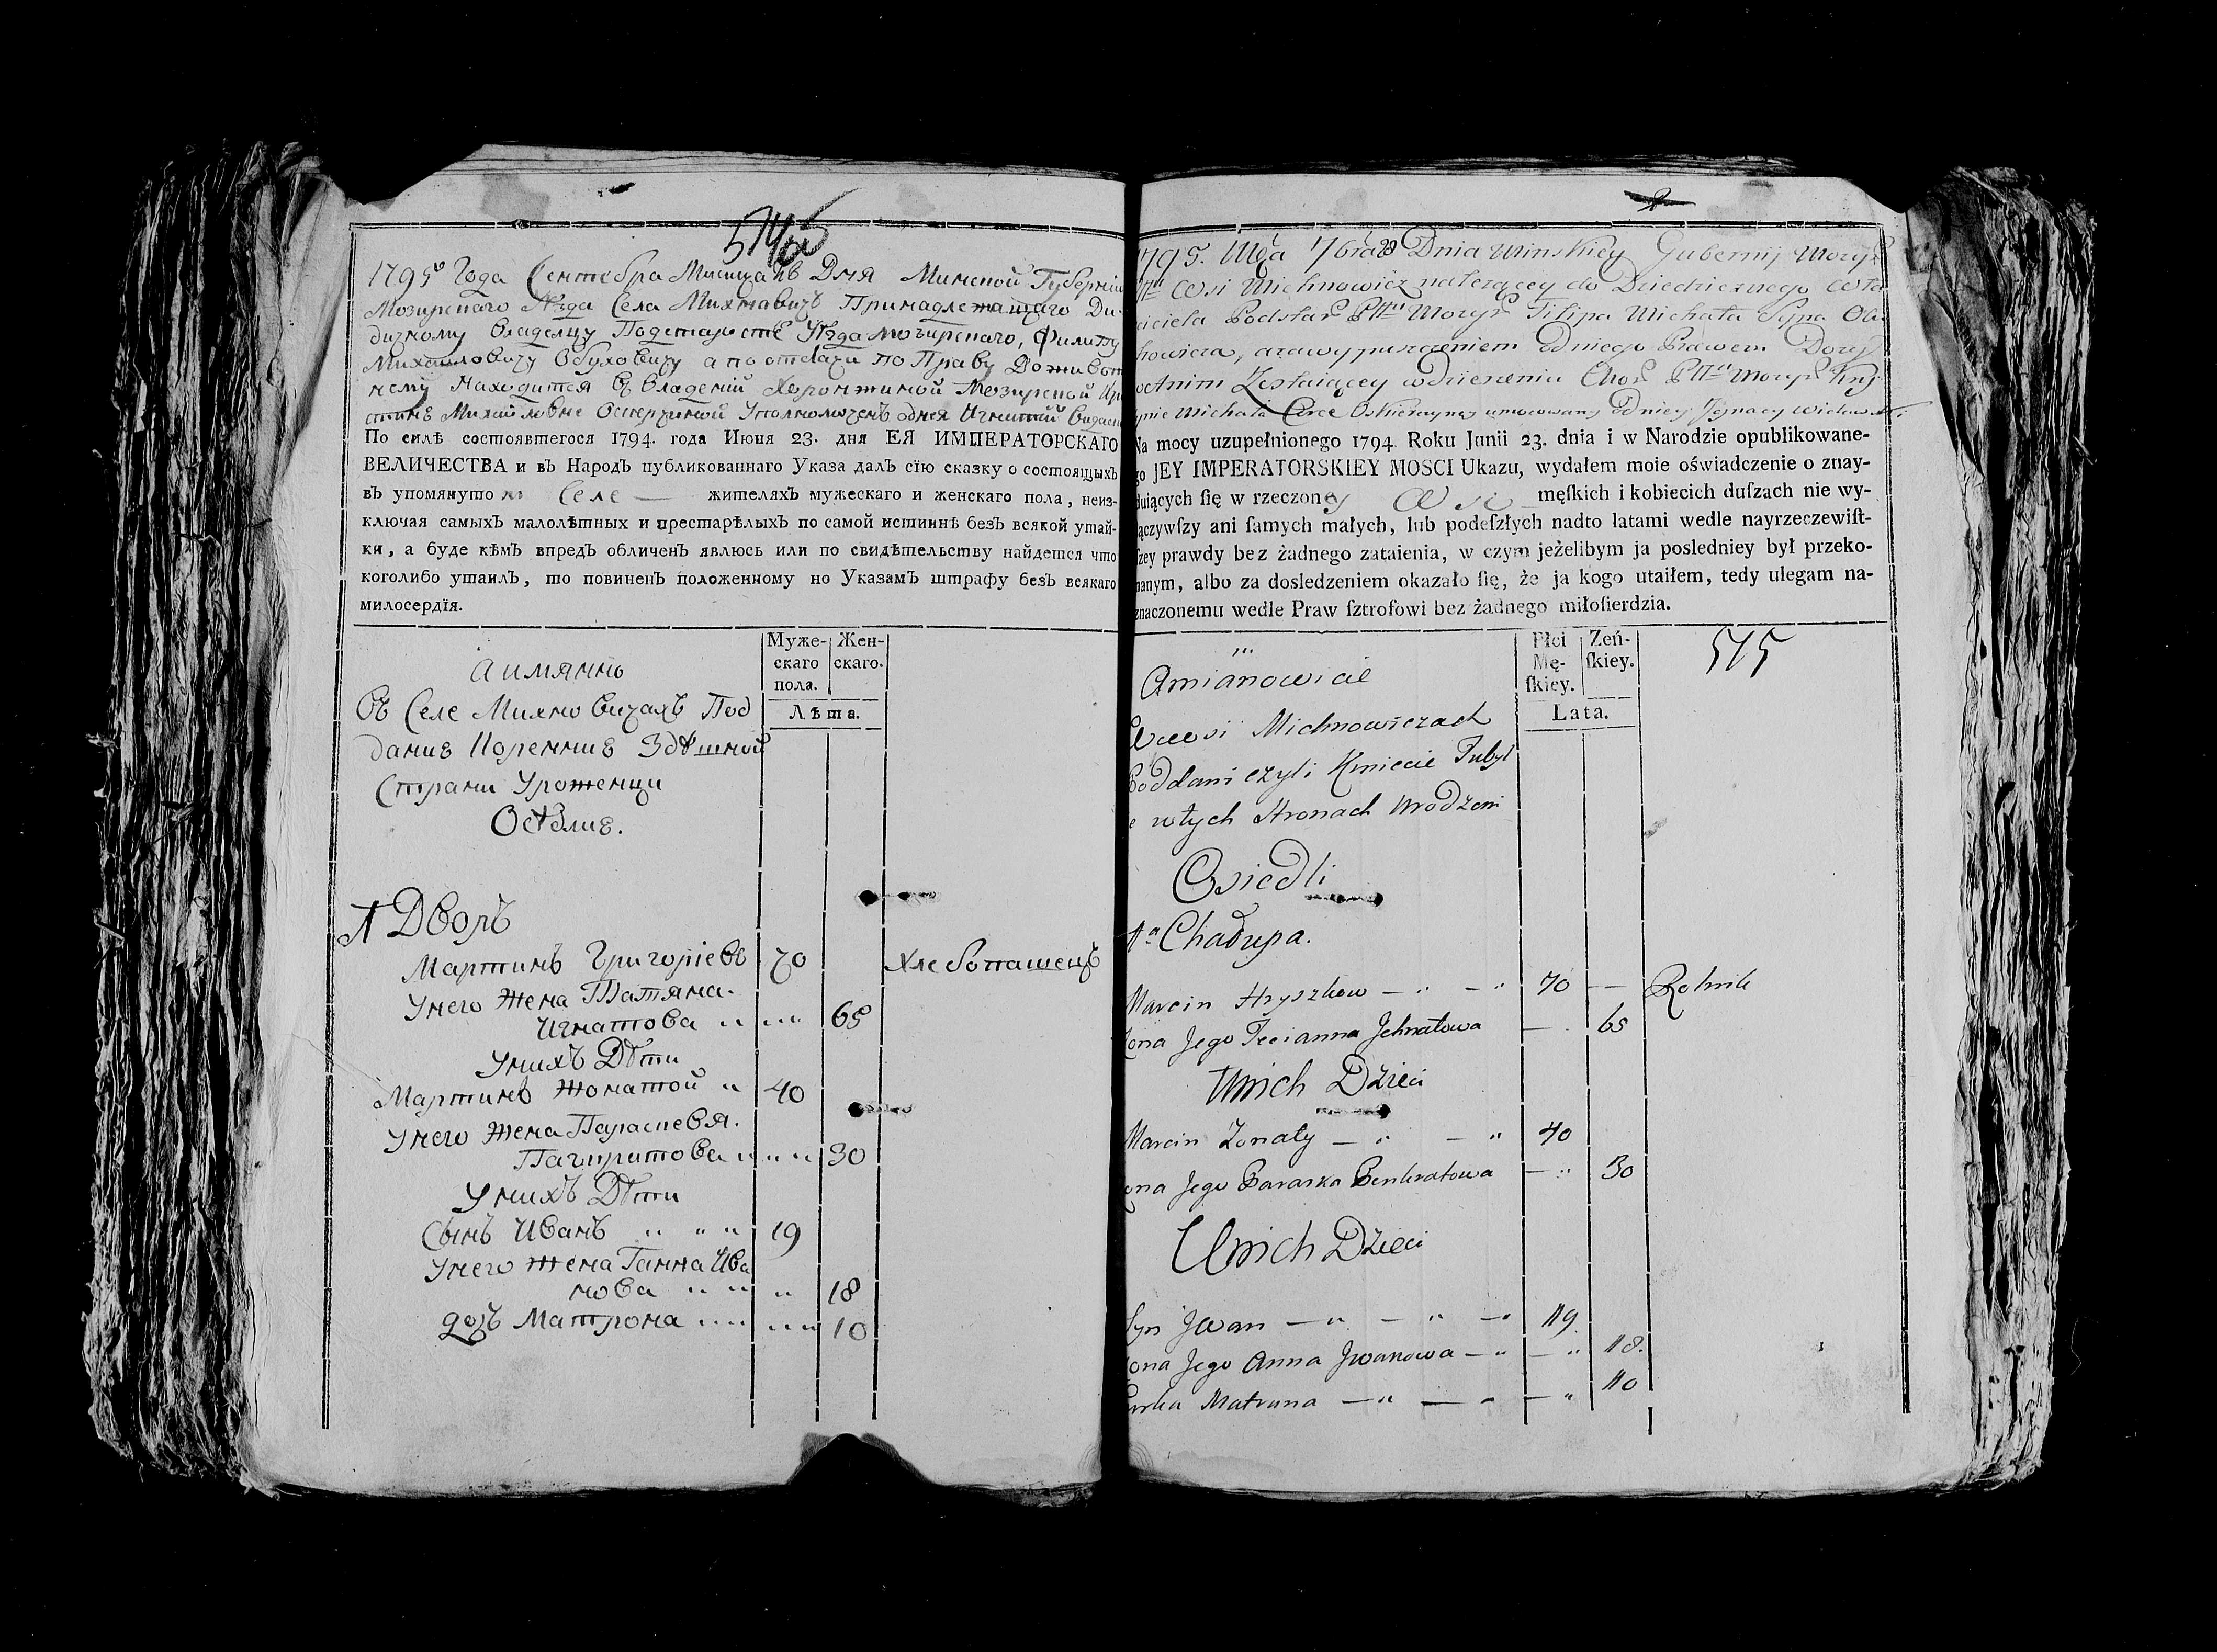 514об
1795го Года Сентебра Месяца 28 Дня Минской Губернии
Мозирскаго Уезда Села Михнавичь Принадлежащаго Ди-
дизному Владелцу Подстаросте Уезда Мозирскаго, Филипу
Михайловичу Обуховичу а по отдачи по Праву Доживот
нему Находится въ Владении Хоронжиной Мозирской Кри
стине Михайловне Оскерчиной Уполномоченъ одней Игнатий
По силѣ состоявшегося 1794. года Июня 23. дня ЕЯ ИМПЕРАТОРСКАГО
ВЕЛИЧЕСТВА и въ Народъ публикованнаго Указа далъ сїю сказку о состоящихъ
въ упомянутом Селе — жителяхъ мужескаго и женскаго пола, неиз-
ключая самыхъ малолѣтныхъ и престарѣлыхъ по самой истиннѣ безъ всякой утай-
ки, а буде кѣмъ впредъ обличенъ явлюсь или по свидѣтельству найдется что
коголибо утаилъ, то повиненъ положенному по Указамъ штрафу безъ всякаго
милосердїя.
Муже-
скаго
пола.
Жен-
скаго.
Лѣта.
А имянно
Въ Селе Михновичахъ Под
дание Коренние Здѣшной
Страни Уроженци
Осѣлие.
1 Дворъ
Мартинъ Григоріевъ 70 Хлебопашецъ
Унего Жена Татяна.
Игнатова 65
Унихъ Дѣти
Мартинъ Жонатой 40
Унего Жена Параскевя.
Панкратова 30
Унихъ Дѣти
Сынъ Иванъ 19
Унего Жена Ганна Ива
нова 18
дочъ Матрона 10
1795. Mca 7bra 28 Dnia Minskiey Gubernij Mozyr
Wsi Michnowicz należącey do Dziedzicznego Wła
iciela Podstar Pttu Mozyr Filipa Michała Syna Obu
howicza, a zawypuszczeniem odniego Prawem Dozy
wotnim Zostaiącey wdzierzeniu Chor Pttu Mozyr Kry
ynie Michała Corce Oskierczyney umocowany odniey Ignacy
Na mocy uzupełnionego 1794. Roku Junii 23. dnia i w Narodzie opublikowane-
go JEY IMPERATORSKIEY MOSCI Ukazu, wydałem moie oświadczenie o znay-
duiących ſię w rzeczoney Wsi męſkich i kobiecich duſzach nie wy-
łączywſzy ani ſamych małych, lub podeſzłych nadto latami wedle nayrzeczewiſt-
ſzey prawdy bez żadnego zataienia, w czym jeżelibym ja posledniey był przeko-
nanym, albo za dosledzeniem okazało ſię, że ja kogo utaiłem, tedy ulegam na-
znaczonemu wedle Praw ſztrofowi bez żadnego miłoſierdzia.
Płci
Mę-
ſkiey.
Zeń-
ſkiey.
Lata.
515
Amianowicie
Wewsi Michnowiczach
Poddani czyli Kmiecie Tubyl
e wtych Stronach Urodzeni
Osiedli
1a Chałupa.
Marcin Hryszkow 70 Rolnik
Zona Jego Tecianna Jehnatowa 65
Unich Dzieci
Marcin Zonaty 40
ona Jego Paraska Penkratowa 30
Unich Dzieci
Syn Jwan 19
ona Jego Anna Jwanowa 18.
Curka Matruna 10